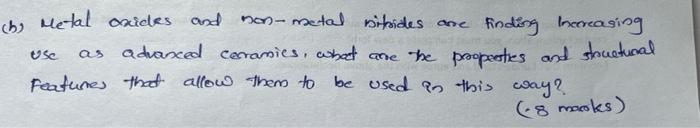 (b) Metal oxides and non-metal nitrides are finding increasing
use as advanced ceramics, what are the properties and structural
features that allow them to be used in this way?
(8 marks)